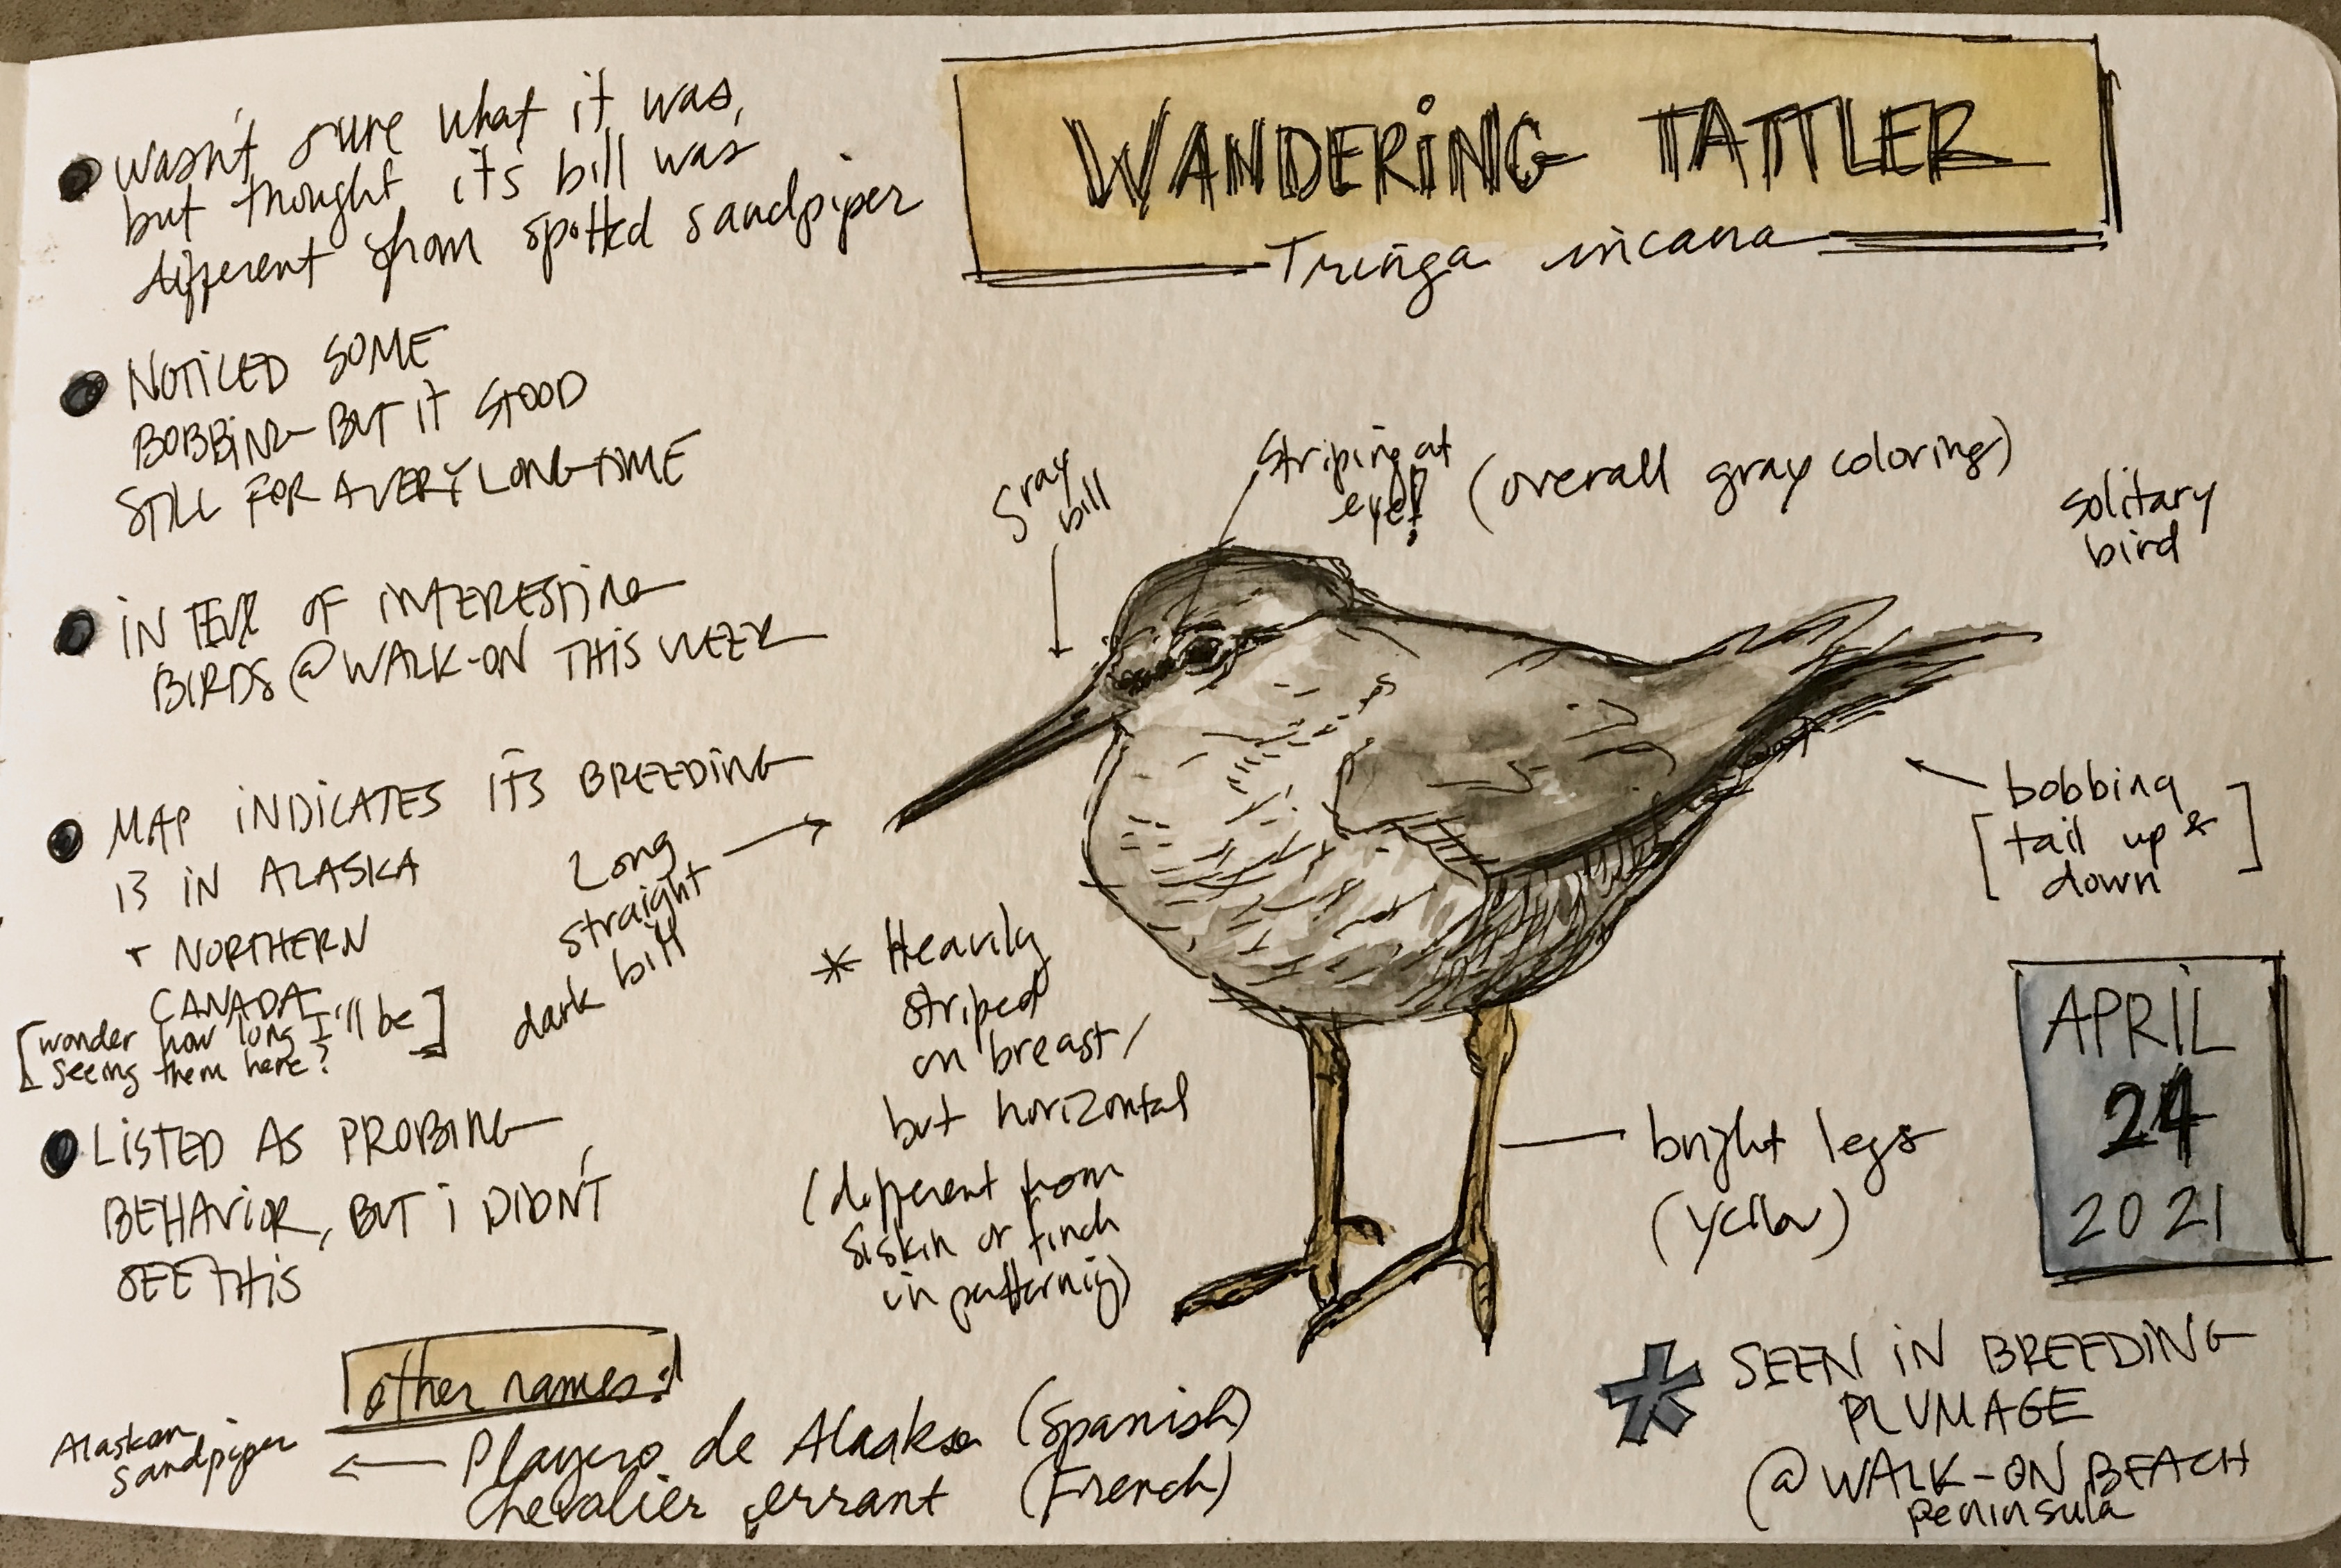 WANDERING TATTLER
Tringa incana
wasn't sure what it was,
but thought its bill was
different from spotted sandpiper
NOTICED SOME
BOBBING BUT IT STOOD
STILL FOR A VERY LONG TIME
IN OF INTERESTING
BIRDS @ WALK-ON THIS WEEK
MAP INDICATES ITS BREEDING
IS IN ALASKA
+ NORTHERN
CANADA
[wonder how long I'll be
seeing them here?]
LISTED AS PROBING
BEHAVIOR, BUT I DIDN'T
SEE THIS
gray
bill
Striping at
eye!
(overall gray coloring)
solitary
bird
Long
straight
dark bill
* Heavily
striped
on breast/
but horizontal
(different from
siskin or finch
in patternig)
bobbing
[tail up &
down]
bright legs
(yellow)
APRIL
24
2021
* SEEN IN BREEDING
PLUMAGE
@ WALK-ON BEACH
peninsula
other names:
Playero de Alaska (Spanish)
Alaskan
sandpiper
Chevalier errant (French)